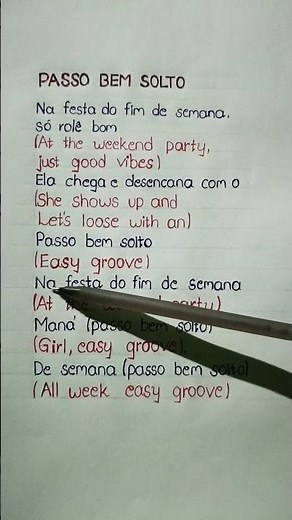 PASSO BEM SOLTO
Na festa do fim de semana,
só rolê bom
(At the weekend party,
just good vibes)
Ela chega e desencana com o
(She shows up and
Let's loose with an)
Passo bem solto
(Easy groove)
Na festa do fim de semana
(At the weekend party)
Maná (passo bem solto)
(Girl, easy groove).
De semana (passo bem solto)
(All week easy groove)